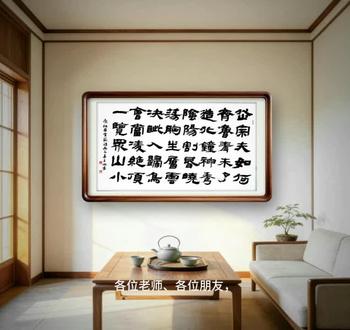 岱宗夫如何
齊魯青未了
造化鐘神秀
陰陽割昏曉
蕩胸生層雲
決眦入歸鳥
會當凌絕頂
一覽眾山小
各位老师、各位朋友，